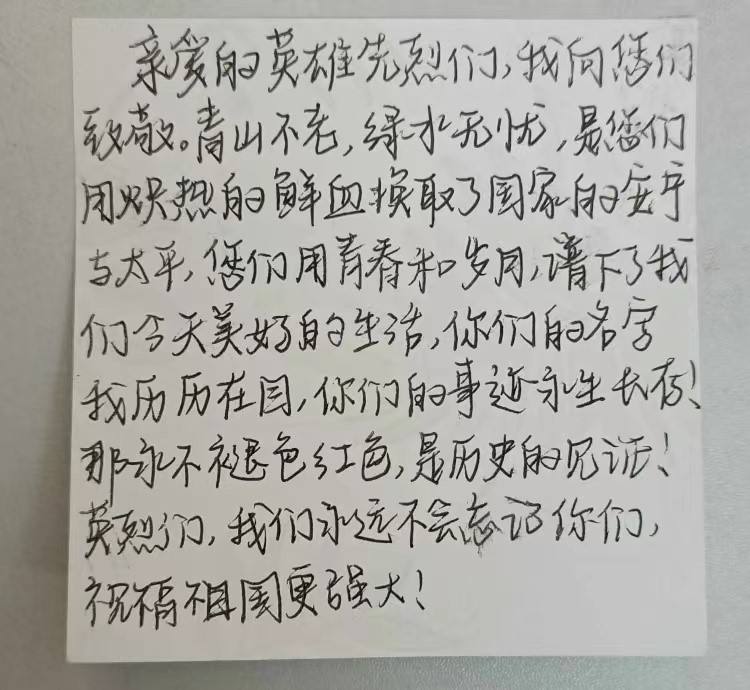 亲爱的英雄先烈们,我向您们
致敬。青山不老,绿水无忧,是您们
用炽热的鲜血换取了国家的安宁
与太平,您们用青春和岁月,谱下了我
们今天美好的生活,你们的名字
我历历在目,你们的事迹永生长存!
那永不褪色红色,是历史的见证!
英烈们,我们永远不会忘记你们,
祝福祖国更强大!